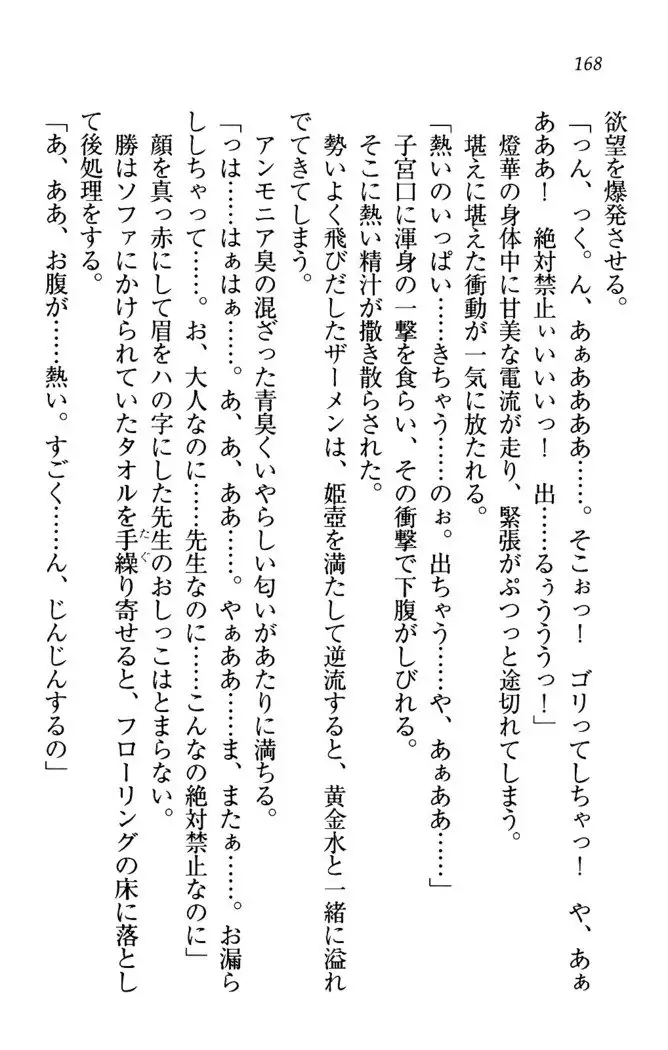 168
欲望を爆発させる。
「っん、っく。ん、あぁああああ……。そこぉっ！　ゴリってしちゃっ！　や、あぁ
あああ！　絶対禁止ぃいいいっ！　出……るぅうううっ！」
燈華の身体中に甘美な電流が走り、緊張がぷつっと途切れてしまう。
堪えに堪えた衝動が一気に放たれる。
「熱いのいっぱい……きちゃう……のぉ。出ちゃう……や、あぁああ……」
子宮口に渾身の一撃を食らい、その衝撃で下腹がしびれる。
そこに熱い精汁が撒き散らされた。
勢いよく飛びだしたザーメンは、姫壺を満たして逆流すると、黄金水と一緒に溢れ
でてきてしまう。
アンモニア臭の混ざった青臭くいやらしい匂いがあたりに満ちる。
「っは……はぁはぁ……。あ、あ、ああ……。やぁああ……ま、またぁ……。お漏ら
ししちゃって……。お、大人なのに……先生なのに……こんなの絶対禁止なのに」
顔を真っ赤にして眉をハの字にした先生のおしっこはとまらない。
勝はソファにかけられていたタオルを手繰り寄せると、フローリングの床に落とし
て後処理をする。
「あ、ああ、お腹が……熱い。すごく……ん、じんじんするの」